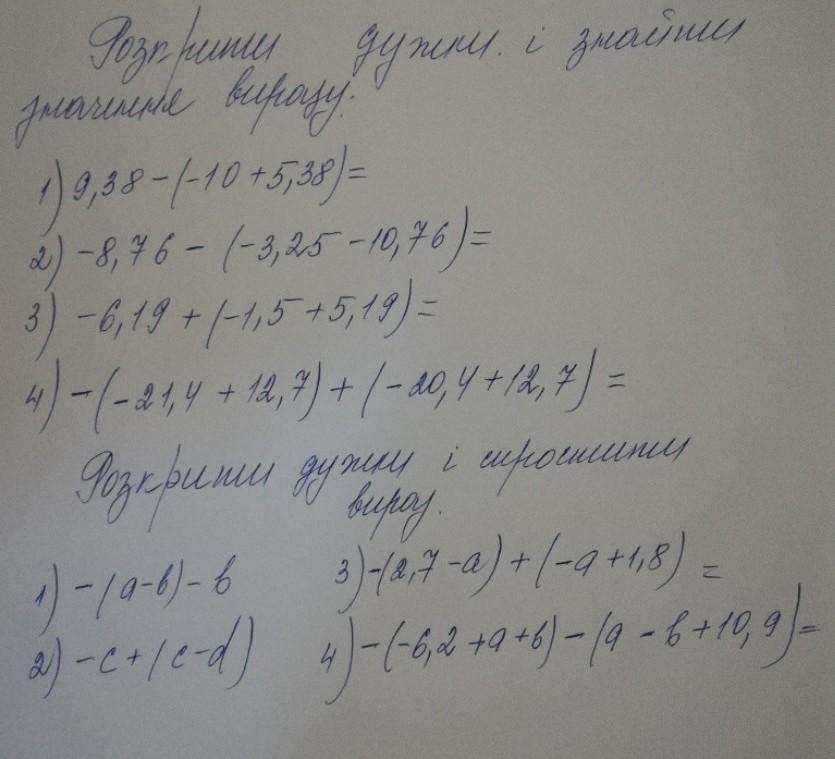 Розкрити дужки. і знайти
значення виразу.
1) 9,38-(-10+5,38)=
2) -8,76 - (-3,25-10,76)=
3) -6,19+(-1,5+5,19)=
4) -(-21,4+12,7)+(-20,4+12,7)=
Розкрити дужки і спростити
вираз.
1) -(а-в)-в
3) -(2,7-а)+(-а+1,8) =
2) -с+(с-d)
4) -(-6,2+а+в)-(а-в+10,9)=